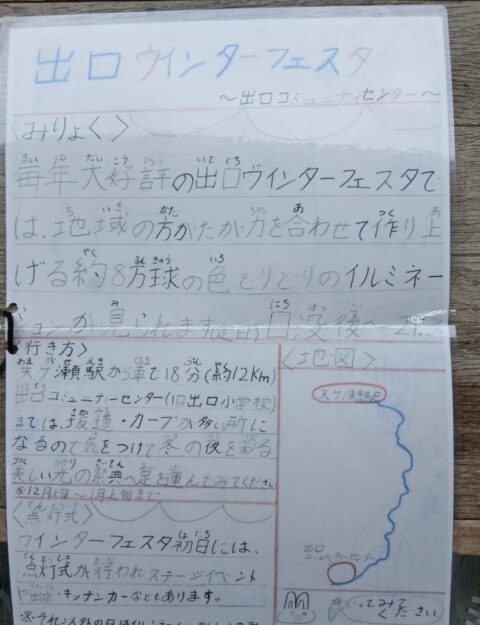 出口ウインターフェスタ
～出口コミュニティセンター～
〈みりょく〉
毎年大好評の出口ウインターフェスタで
は、地域の方がたが力を合わせて作り上
げる約8万球の色とりどりのイルミネー
ションが見られます 日没後～21
〈行き方〉
天ヶ瀬駅から車で18分(約12Km)
出口コミュニティーセンター(旧出口小学校)
までは、坂道・カーブが多い所に
なるので気をつけて冬の夜を彩る
美しい光の祭典へ足を運んでみてください
※12月上旬～1月上旬まで
〈点灯式〉
ウインターフェスタ初日には、
点灯式が行われステージイベント
や出店・キッチンカーなどもあります。
〈地図〉
天ヶ瀬駅
出口
コミュニティーセンター
いってみて
ください